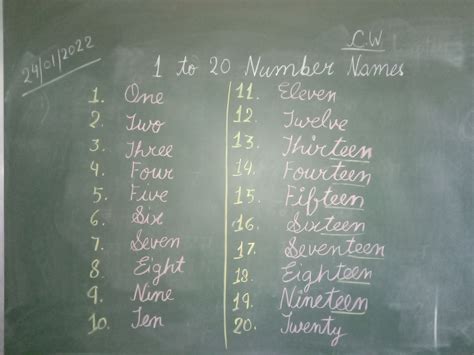 C.W
24/01/2022
1 to 20 Number Names
1. One
2. Two
3. Three
4. Four
5. Five
6. Six
7. Seven
8. Eight
9. Nine
10. Ten
11. Eleven
12. Twelve
13. Thirteen
14. Fourteen
15. Fifteen
16. Sixteen
17. Seventeen
18. Eighteen
19. Nineteen
20. Twenty